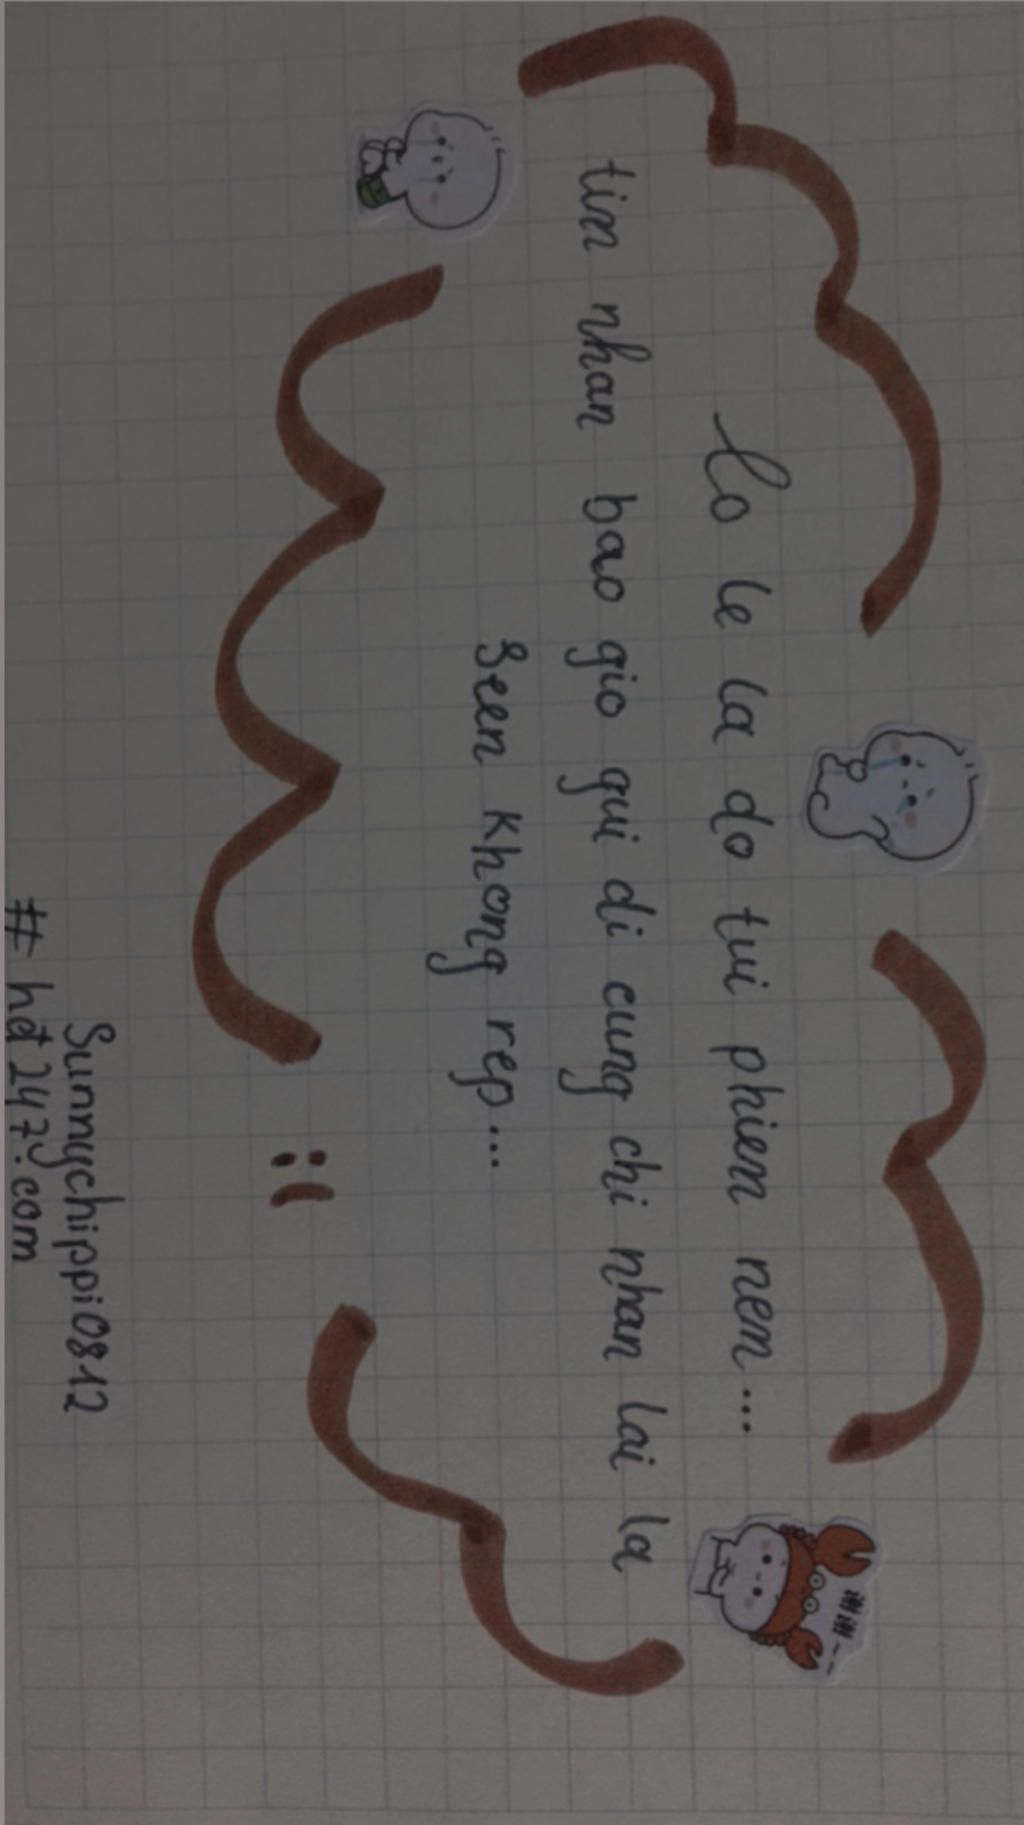 Co le la do tui phien nem...
tin nhan bao gio gui di cung chi nhan lai la
Seen khong rep...
:(
Sunnychippi0812
# hđ247.com